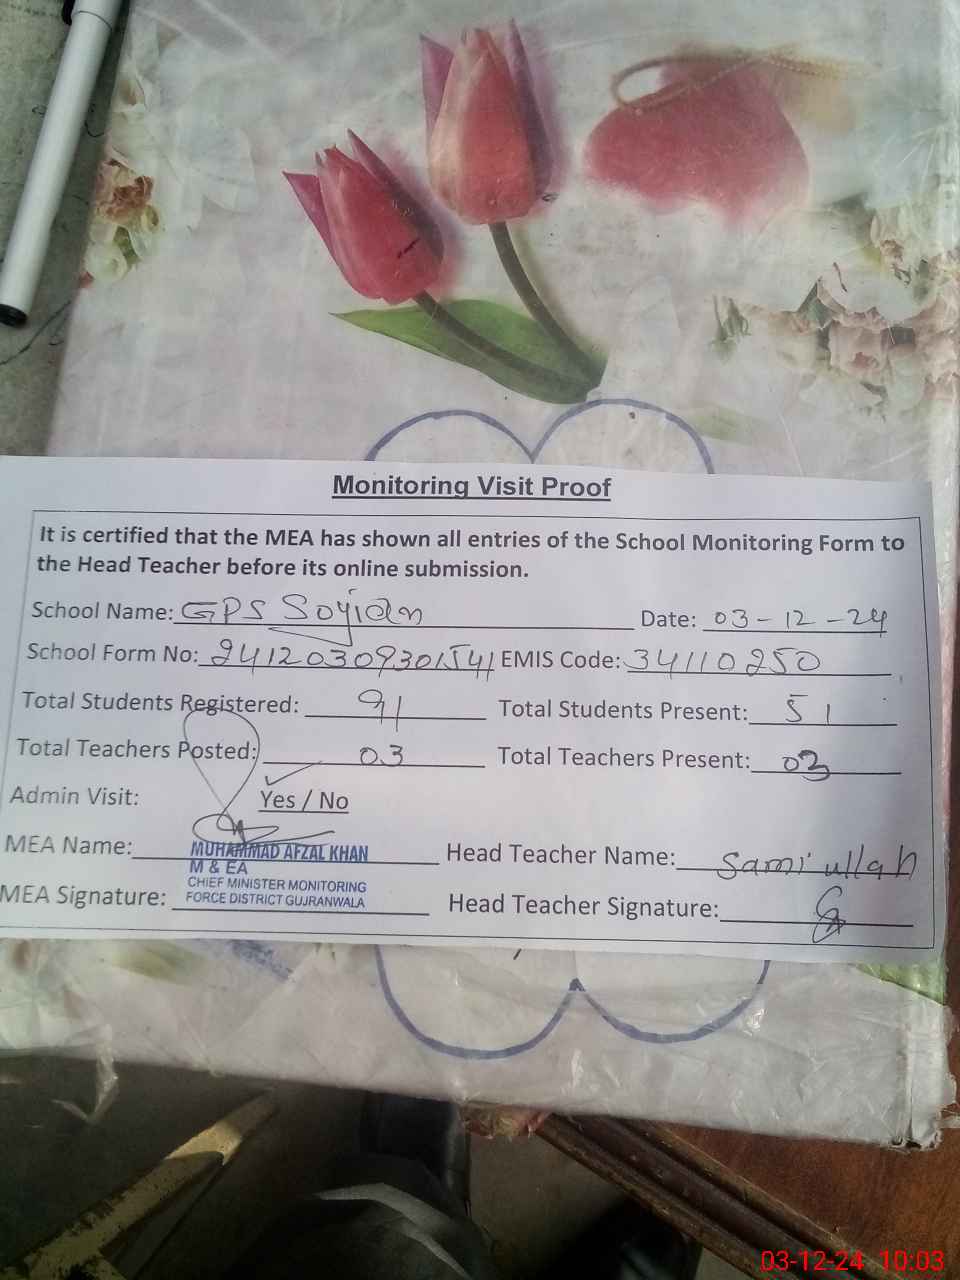 Monitoring Visit Proof
It is certified that the MEA has shown all entries of the School Monitoring Form to
the Head Teacher before its online submission.
School Name: GPS Soyian Date: 03-12-24
School Form No: 24120309301541 EMIS Code: 34110250
Total Students Registered: 91 Total Students Present: 51
Total Teachers Posted: 03 Total Teachers Present: 03
Admin Visit: Yes / No
MEA Name: MUHAMMAD AFZAL KHAN Head Teacher Name: Sami ullah
M & EA
CHIEF MINISTER MONITORING
MEA Signature: FORCE DISTRICT GUJRANWALA Head Teacher Signature:
03-12-24 10:03